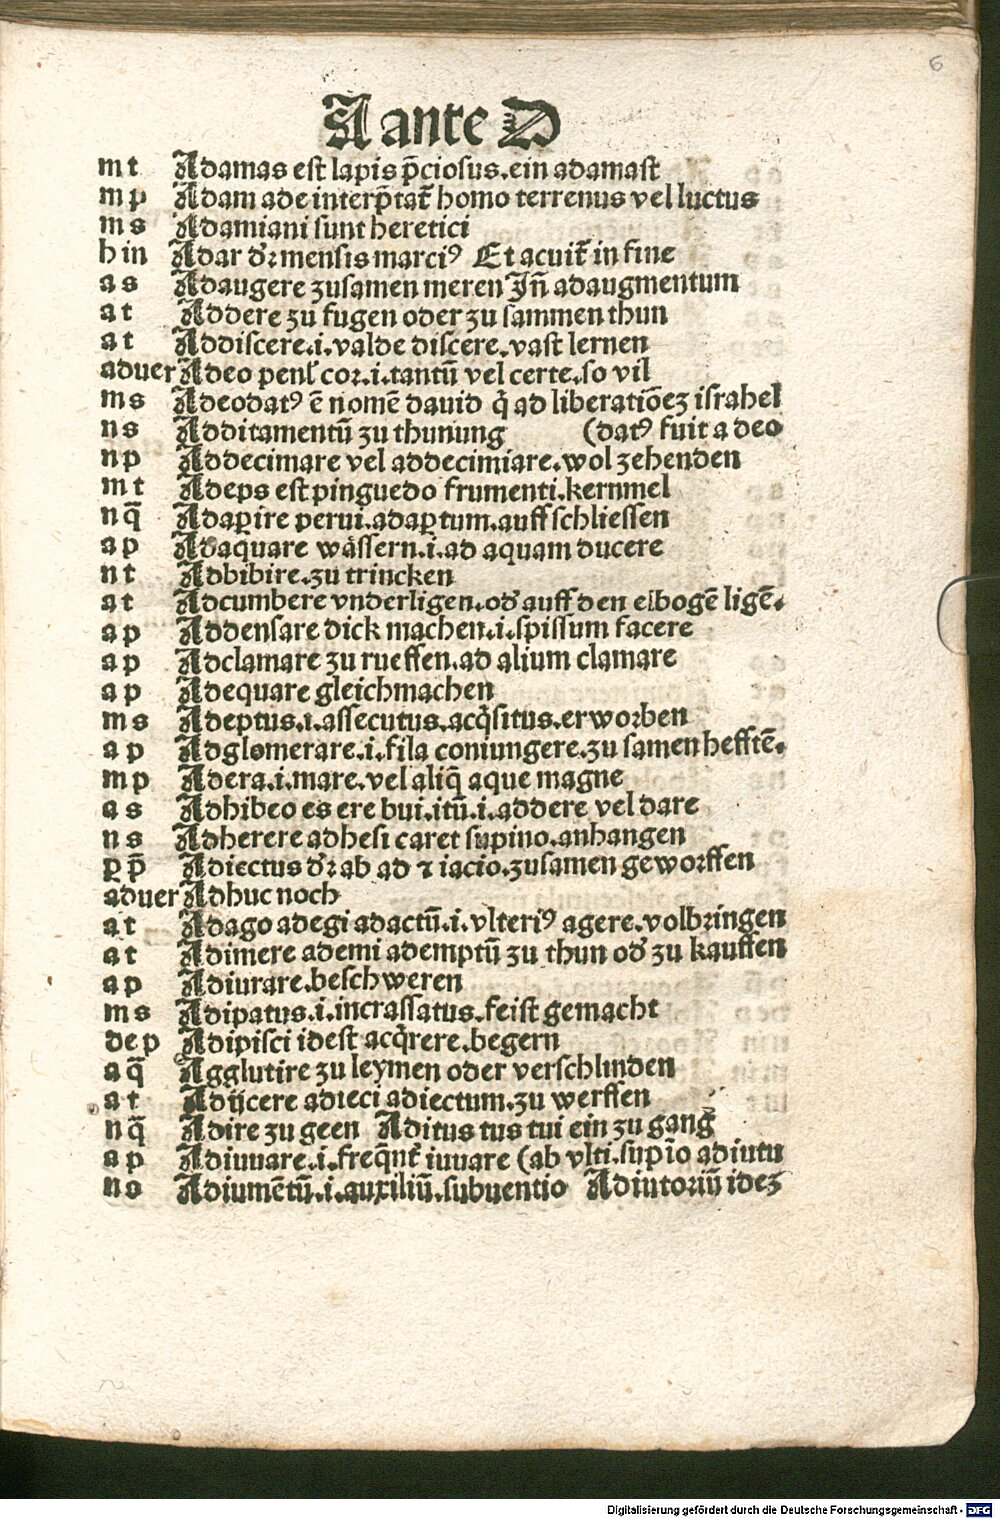 6
A ante D
mt Adamas est lapis p̄ciosus.ein adamast
mp Adam ade interp̄tat᷑ homo terrenus vel luctus
ms Adamiani sunt heretici
hin Adar dꝛ mensis marciꝰ Et acuit᷑ in fine
as Adaugere zusamen meren Jn̄ adaugmentum
at Addere zu fugen oder zu sammen thun
at Addiscere.i.valde discere.vast lernen
aduer Adeo penl᷑ cor.i.tantū vel certe.so vil
ms Adeodatꝰ ē nomē dauid q̇ ad liberatiōeꝫ israhel
ns Additamentū zu thunung (datꝰ fuit a deo
np Addecimare vel addecimiare.wol zehenden
mt Adeps est pinguedo frumenti.kernmel
nq̄ Adaꝑire perui.adaꝑtum.auff schliessen
ap Adaquare wässern.i.ad aquam ducere
nt Adbibire.zu trincken
at Adcumbere vnderligen.od᷑ auff den elbogē ligē.
ap Addensare dick machen.i.spissum facere
ap Adclamare zu rueffen.ad alium clamare
ap Adequare gleichmachen
ms Adeptus.i.assecutus.acq̇situs.erworben
ap Adglomerare.i.fila coniungere.zu samen hefftē.
mp Adera.i.mare.vel aliq̄ aque magne
as Adhibeo es ere bui.itū.i.addere vel dare
ns Adherere adhesi caret supino.anhangen
ꝑp̄ Adiectus dꝛ ab ad ⁊ iacio.zusamen geworffen
aduer Adhuc noch
at Adago adegi adactū.i.vlteriꝰ agere.volbringen
at Adimere ademi ademptū zu thun od᷑ zu kauffen
ap Adiurare.beschweren
ms Adipatus.i.incrassatus.feist gemacht
dep Adipisci idest acq̇rere.begern
aq̄ Agglutire zu leymen oder verschlinden
at Adijcere adieci adiectum.zu werffen
nq̄ Adire zu geen Aditus tus tui ein zu gang
ap Adiuuare.i.freq̄nt᷑ iuuare (ab vlti.supīo adiutu
ns Adiumētū.i.auxiliū.subuentio Adiutoriū ideꝫ
Digitalisierung gefördert durch die Deutsche Forschungsgemeinschaft - DFG